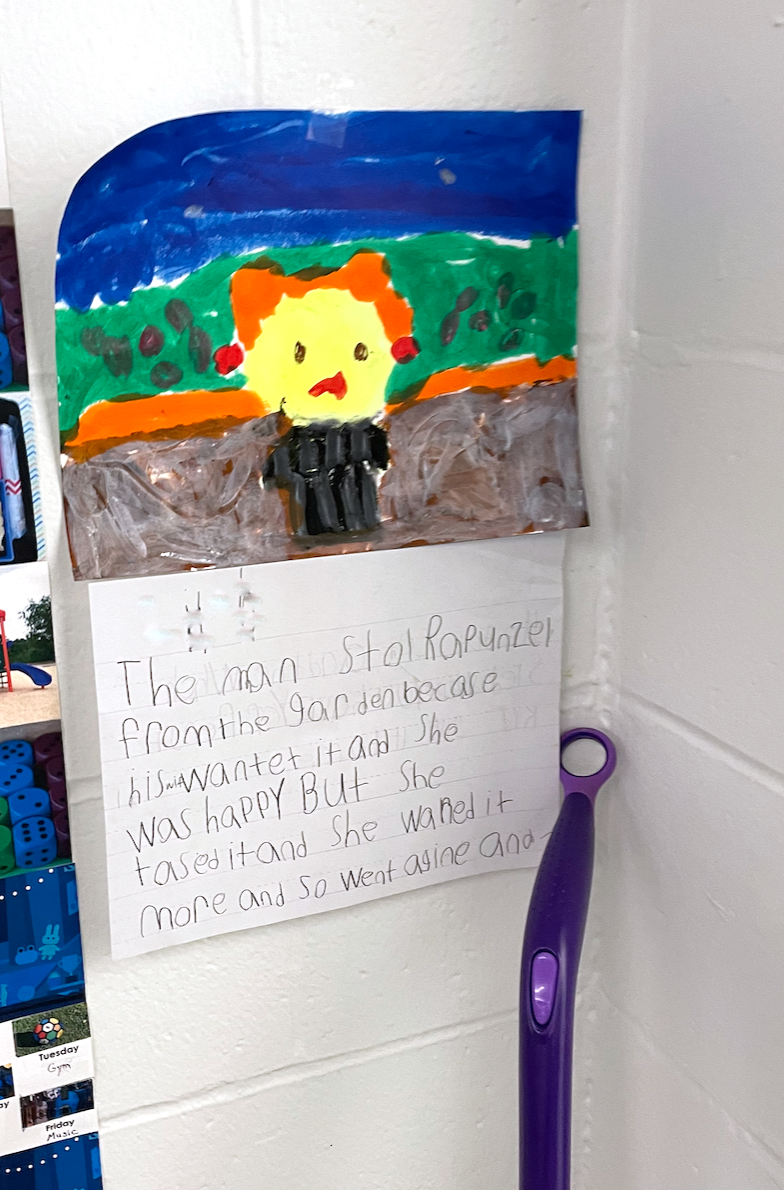 The man Stol Rapunzel
from the garden becase
his wantet it and She
was happy But She
tased it and She waned it
more and so went agine and
Tuesday
Gym
Friday
Music